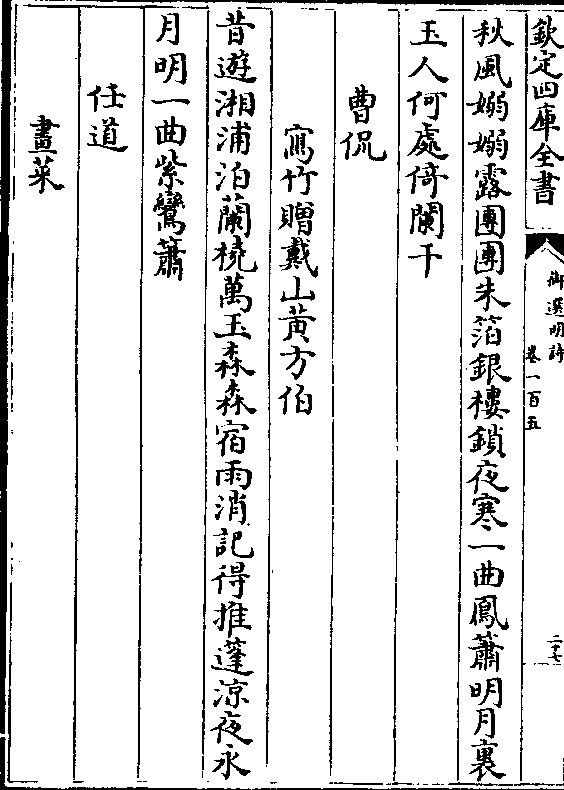 欽定四庫全書
御選明詩
卷一百五
二十七
秋風嫋嫋露團團朱箔銀樓鎖夜寒一曲鳳簫明月裏
玉人何處倚闌干
曹侃
寫竹贈戴山黃方伯
昔遊湘浦泊蘭橈萬玉森森宿雨消記得推蓬涼夜永
月明一曲紫鸞簫
任道
畫菜